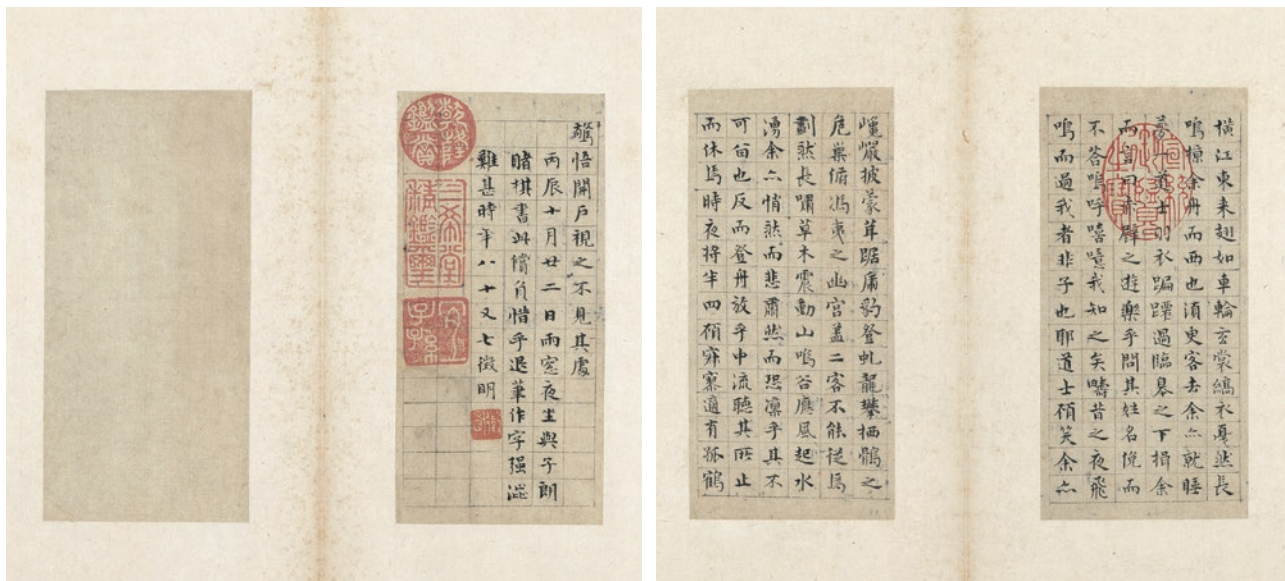 橫江東来翅如車輪玄裳縞衣戛然長
鳴掠余舟而西也須臾客去余亦就睡
夢一道士羽衣蹁躚過臨皋之下揖余
而言曰赤壁之遊樂乎問其姓名俛而
不答嗚呼嘻噫我知之矣疇昔之夜飛
鳴而過我者非子也耶道士顧笑余亦
巉巖披蒙茸踞虎豹登虬龍攀栖鶻之
危巢俯馮夷之幽宮蓋二客不能從焉
劃然長嘯草木震動山鳴谷應風起水
湧余亦悄然而悲肅然而恐凛乎其不
可留也反而登舟放乎中流聽其所止
而休焉時夜将半四顧寂寥適有孤鶴
驚悟開戶視之不見其處
丙辰十月廿二日雨窓夜坐與子朗
賭棋書此償負惜乎退筆作字强澁
難甚時年八十又七徵明
乾隆鑑賞
三希堂精鑑璽
宜子孫